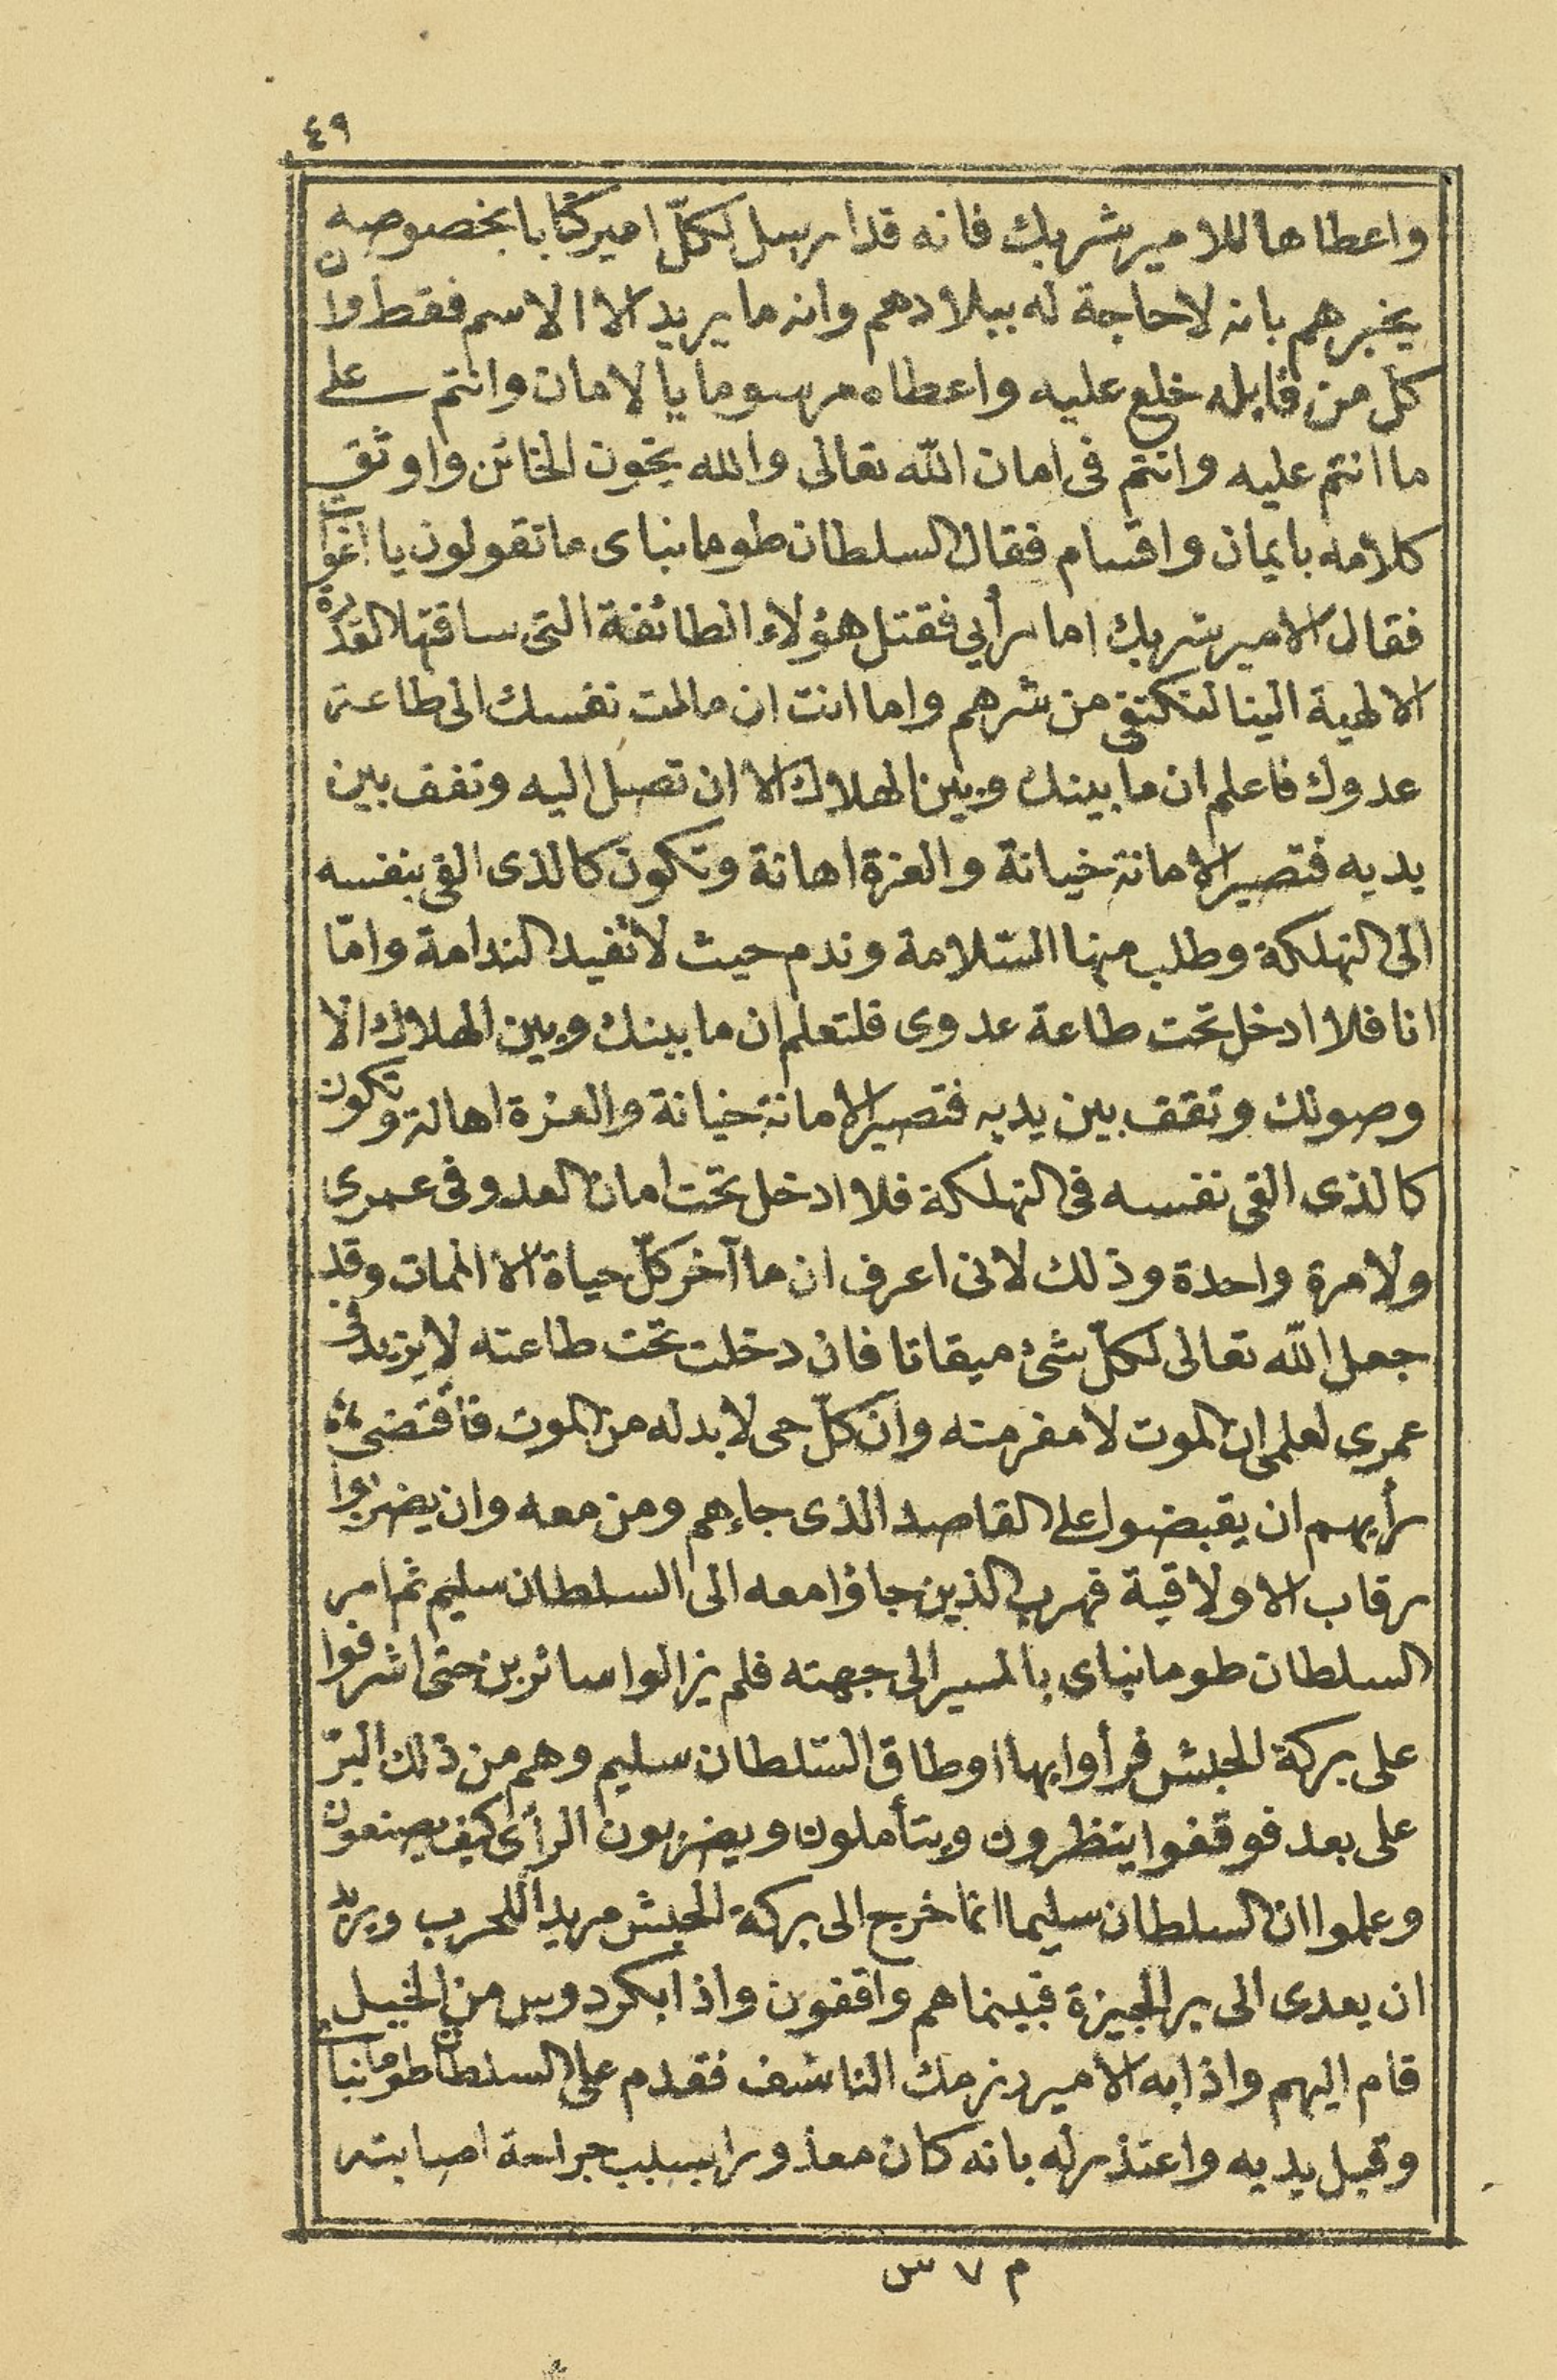 ٤٩
واعطاها للامير شربك فانه قد ارسل لكلّ امير كتابا بخصوصه
يخبرهم بانه لا حاجة له ببلادهم وانه ما يريد الا الاسم فقط وان
كل من قابله خلع عليه واعطاه مرسوما بالامان وانتم على
ما انتم عليه وانتم فى امان الله تعالى والله يخون الخائن واوثق
كلامه بايمان واقسام فقال السلطان طومانباى ما تقولون يا اغوات
فقال الامير شربك اما رأيى فقتل هؤلاء الطائفة التى ساقتها القدرة
الالهية الينا لنكتفى من شرهم واما انت ان مالت نفسك الى طاعة
عدوك فاعلم ان ما بينك وبين الهلاك الا ان تصل اليه وتقف بين
يديه فتصير الامانة خيانة والعزة اهانة وتكون كالذى القى بنفسه
الى التهلكة وطلب منها السّلامة وندم حيث لا تفيد الندامة وامّا
انا فلا ادخل تحت طاعة عدوى فلتعلم ان ما بينك وبين الهلاك الا
وصولك وتقف بين يديه فتصير الامانة خيانة والعزة اهالة وتكون
كالذى القى نفسه فى التهلكة فلا ادخل تحت امان العدو فى عمرى
ولا مرة واحدة وذلك لانى اعرف ان ما آخر كلّ حياة الا الممات وقد
جعل الله تعالى لكلّ شئ ميقاتا فان دخلت تحت طاعته لا يزيد فى
عمرى لعلمى ان الموت لا مفر منه وانّ كلّ حى لا بد له من الموت فاقتضى
رأيهم ان يقبضوا على القاصد الذى جاءهم ومن معه وان يضربوا
رقاب الاولاقية فهرب الذين جاؤا معه الى السلطان سليم ثم امر
السلطان طومانباى بالمسير الى جهته فلم يزالوا سائرين حتى اشرفوا
على بركة الحبش فرأوا بها اوطاق السّلطان سليم وهم من ذلك البرّ
على بعد فوقفوا ينظرون ويتأملون ويضربون الرأى كيف يصنعون
وعلموا ان السلطان سليما انما خرج الى بركة الحبش مريدا للحرب ويريد
ان يعدى الى بر الجيزة فبينما هم واقفون واذا بكردوس من الخيل
قام اليهم واذا به الامير دزمك الناشف فقدم على السلطان طومانباى
وقبل يديه واعتذر له بانه كان معذورا بسبب جراحة اصابته
م ٧ س